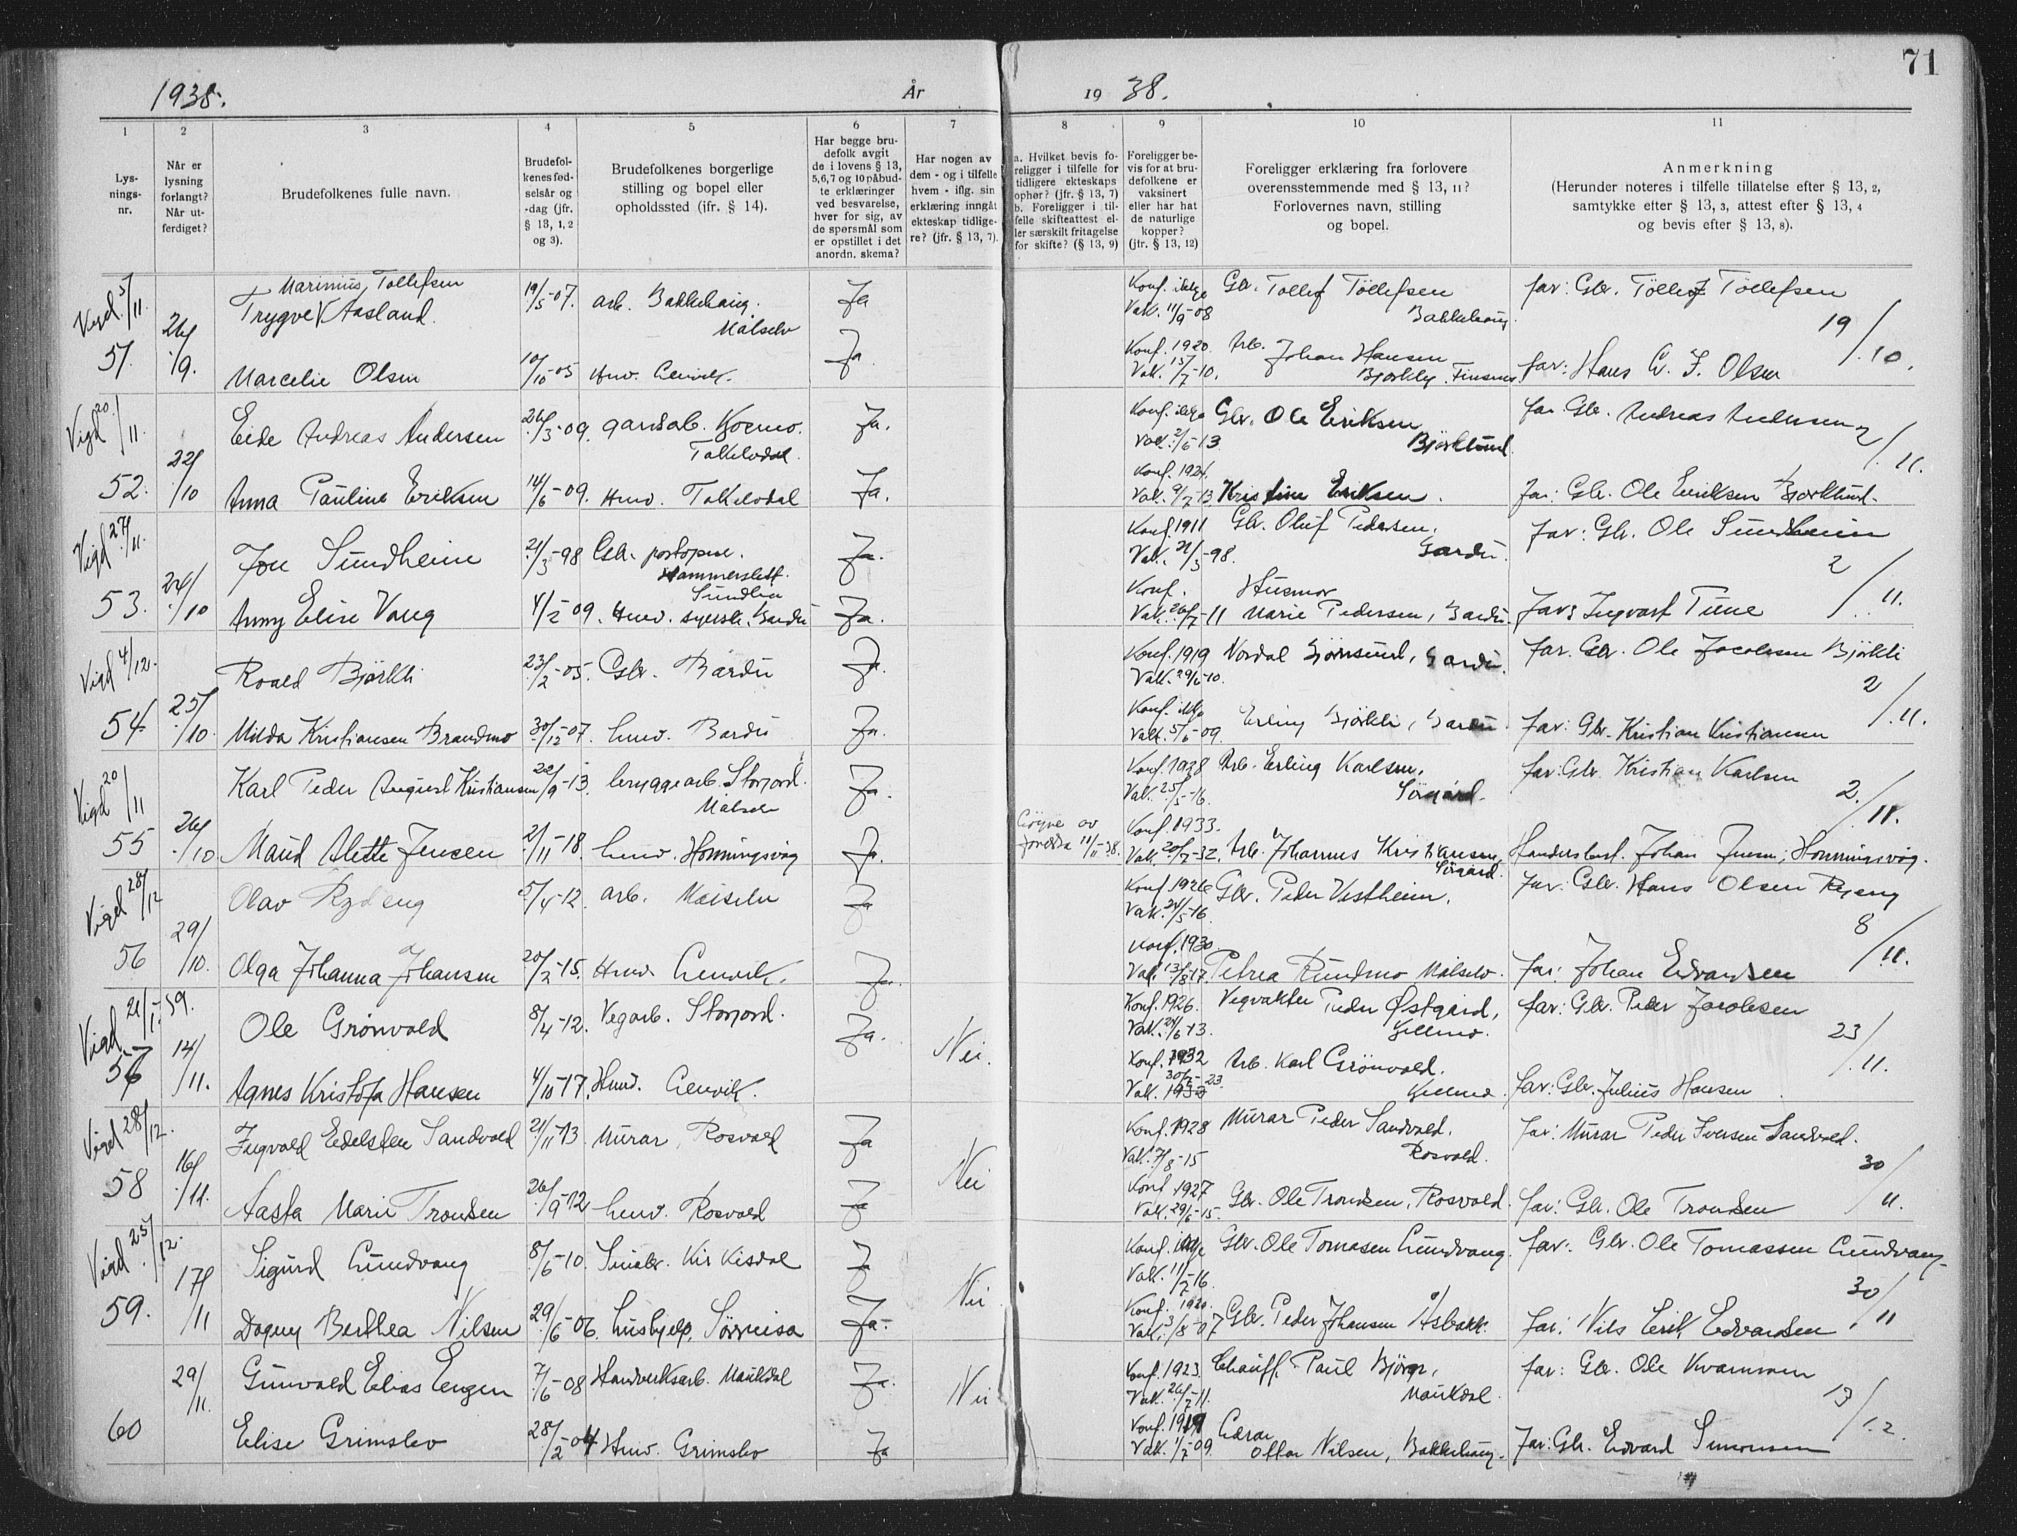 71
1938.
År
19 38.
1
2
3
4
5
6
7
8
9
10
11
Lys-
nings-
nr.
Når er
lysning
forlangt?
Når ut-
ferdiget?
Brudefolkenes fulle navn.
Brudefol-
kenes fød-
selsår og
-dag (jfr.
§ 13, 1, 2
og 3).
Brudefolkenes borgerlige
stilling og bopel eller
opholdssted (ifr. § 14).
Har begge bru-
defolk avgit
de i lovens § 13,
5,6,7 og 10 påbud-
te erklæringer
ved besvarelse,
hver for sig, av
de spørsmål som
er opstillet i det
anordn. skema?
Har nogen av
dem - og i tilfelle
hvem - iflg. sin
erklæring inngåt
ekteskap tidlige-
re? (jfr. § 13, 7).
a. Hvilket bevis fo-
religger i tilfelle for
tidligere ekteskaps
ophør? (jfr. § 13, 7)
b. Foreligger i til-
felle skifteattest el-
ler særskilt fritagelse
for skifte? (§ 13, 9)
Foreligger be-
vis for at bru-
defolkene er
vaksinert
eller har hat
de naturlige
kopper?
(jfr. § 13, 12)
Foreligger erklæring fra forlovere
overensstemmende med § 13, 11?
Forlovernes navn, stilling
og bopel.
Anmerkning
(Herunder noteres i tilfelle tillatelse efter § 13, 2,
samtykke efter § 13, 3, attest efter § 13, 4
og bevis efter § 13, 8).
Vigd 5/11
51. 26/9.
Marinius Tollefsen
Trygve Aasland. 19/5-07. arb. Bakkehaug. Målselv Ja
Konf. ikke Vak. 11/9-08 Gbr. Tollef Tollefsen Bakkehaug. far: Gbr. Tollef Tollefsen
19/10.
Marcelie Olsen 10/10-05 Husv. Lenvik. Ja.
Konf. 1920. Vak. 15/7-10. Arb. Johan Hansen Bjorkly, Finsnes far: Hans C. F. Olsen
Vigd 20/11.
52. 22/10
Eide Andreas Andersen 26/3-09. gardsarb. Moemo. Takelvdal. Ja.
Konf. ikke Vak. 2/6-13. Gbr. Ole Eriksen Bjørklund. far. Gbr. Andreas Andersen
2/11.
Anna Pauline Eriksen 14/6-09. Husv. Takelvdal Ja.
Konf. 1924. Vak. 9/7-13 Kristine Eriksen. far: Gbr. Ole Eriksen Bjorklund.
Vigd 27/11.
53. 24/10
Jon Sundheim 21/3-98 Gbr. postopsr. Hammerslett. Sundlia Ja.
Konf. 1911 Vak. 21/5-98. Gbr. Oluf Pedersen. Bardu. far: Gbr. Ole Sundheim
2/11.
Anny Elise Vang 4/2-09. Husv. syersk. Bardu Ja.
Konf. Vak. 26/7-11 Husmor Marie Pedersen, Bardu. far: Ingvart Tune
Vigd 4/12.
54 25/10.
Roald Bjørkli 23/2-05. Gbr. Bardu Ja.
Konf. 1919 Vak. 29/6-10. Nordal Bjørnsund, Bardu. far. Gbr. Ole Jacobsen Bjørkli
2/11.
Milda Kristiansen Brandmo 30/12-07. husv. Bardu Ja.
Konf. ikke Vak. 5/6-09. Erling Bjørkli, Bardu. far: Gbr. Kristian Kristiansen
Vigd 20/11
55 26/10
Karl Peder August Kristiansen 22/9-13. bryggearb. Storjord. Målselv Ja.
Konf. 1928 Vak. 25/5-16. Arb. Erling Karlsen, Sørgård. far: Gbr. Kristian Karlsen
2/11.
Maud Alette Jensen 2/11-18. husv. Honningsvåg Ja.
11/11-38. Konf. 1933. Vak. 20/7-32. Arb. Johannes Kristiansen, Sørgård. Johan Jensen, Honningsvåg.
Vigd 28/12
56 29/10.
Olav Rydeng 5/4-12 arb. Målselv Ja
Konf. 1926 Vak. 24/5-16. Gbr. Peder Vestheim. far: Gbr. Hans Olsen Ryeng
8/11.
Olga Johanna Johansen 20/2-15. Husv. Lenvik. Ja.
Konf. 1930. Vak. 13/8-17. Petrea Rundmo Målselv. far: Johan Edvardsen
Vigd 21/1. 39.
57 14/11.
Ole Grønvold 8/4-12. Vegarb. Storjord. Ja. Nei.
Konf. 1926. Vak. 24/6-13. Vegvakter Peder Østgård, Gullmo. far: Gbr. Peder Jacobsen
23/11.
Agnes Kristofa Hansen 4/10-17. Husv. Lenvik.
Konf. 1932 30/5-23 Vak. 1933 Arb. Karl Grønvold. far: Gbr. Julius Hansen
Vigd 28/12.
58 16/11.
Ingvald Edelsten Sandvold 21/11-13 Murar, Rosvold Ja Nei
Konf. 1928 Vak. 7/8-15 Murar Peder Sandvold. Rosvold. far: Murar Peder Iversen Sandvold.
30/11.
Aasta Marie Trondsen 26/9-12 husv. Rosvold Ja
Konf. 1927 Vak. 29/6-15. Gbr. Ole Trondsen, Rosvold. far: Gbr. Ole Trondsen
Vigd 25/12.
59. 17/11
Sigurd Lundvang 8/6-10. Småbr. Kirkesdal Ja Nei
Konf. ikke Vak. 11/7-16. Gbr. Ole Tomasen Lundvang. far: Gbr. Ole Tomassen Lundvang
30/11
Dagny Berthea Nilsen 29/6-06. hushjelp, Sørreisa Ja.
Konf. 1920. Vak. 3/8-07 Gbr. Peder Johansen Åsbakk. far: Nils Erik Edvardsen
60 29/11.
Gunvald Elias Engen 7/6-08 Handverksarb. Maukdal Ja. Nei
Konf. 1923. Vak. 26/7-11. Chauff. Paul Bjørge, Maukdal. far: Gbr. Ole Kvammen
13/12.
Elise Grimslev 28/2-04 Husv. Grimslev Ja
Konf. 1919 Vak. 1/7-09. Lærar Ottar Nilsen, Bakkehaug. far: Gbr. Edvard Simonsen